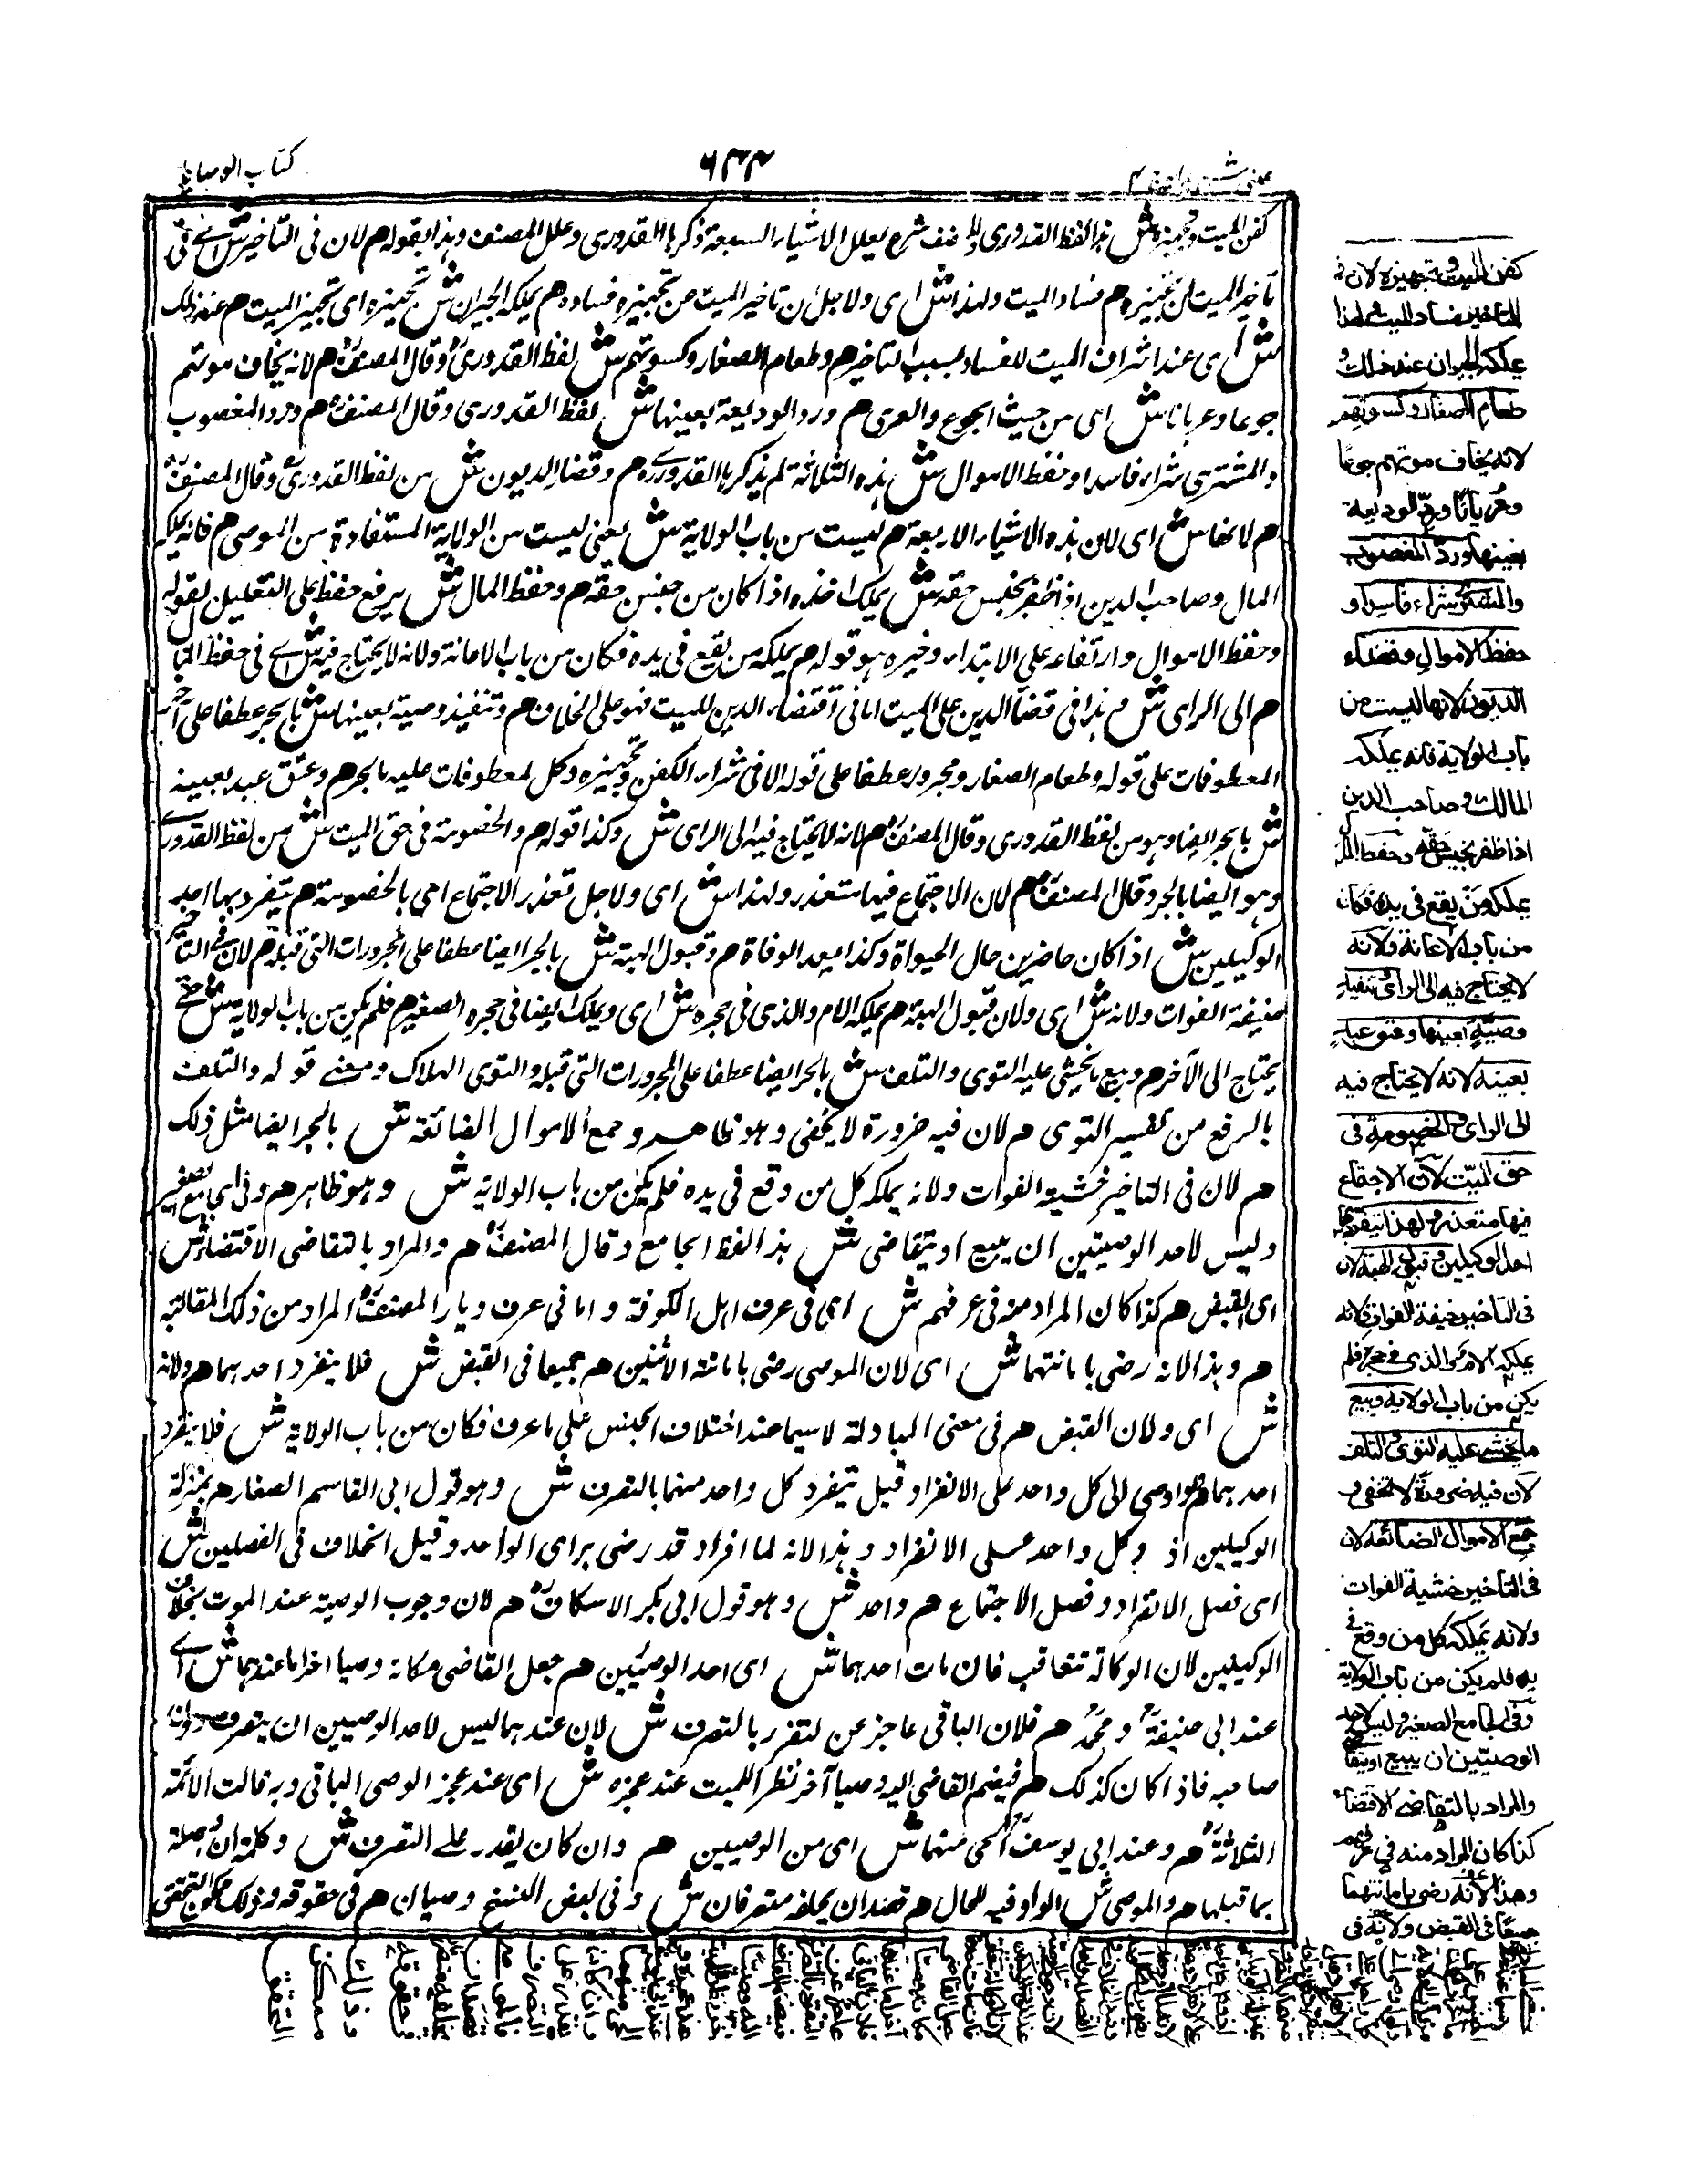 كتاب الوصايا
٦٤٤
كفن الميت وتجهيزه ش هذا لفظ القدوري والمصنف شرع يعلل الاشياء السبعة ذكرها القدوري وعلل المصنف وهذا بقوله م لان في التاخير ش اے في
تاخير الميت عن تجهيزه م فساد الميت ولهذا ش اى ولاجل ان تاخير الميت من تجهيزه فساده م يملكه الجيران ش تجهيزه اى تجهيز الميت م عند ذلك
ش اى عند اشراف الميت للفساد بسبب التاخير م وطعام الصغار وكسوتهم ش لفظ القدورى وقال المصنف م لانه يخاف موتهم
جوعا وعريانا ش اى من حيث الجوع والعرى م ورد الوديعة بعينها ش لفظ القدورى وقال المصنف م ورد المغصوب
والمشترى شراء فاسدا وحفظ الاموال ش هذه الثلثة لم يذكرها القدورے م وقضاء الديون ش من لفظ القدورى وقال المصنف
م لانها ش اى لان هذه الاشياء الاربعة م ليست من باب الولاية ش يعنى ليست من الولاية المستفادة من الموصى م فانه يملكه
المال وصاحب الدين اذا ظفر بجنس حقه ش يملك اخذه اذا كان من جنس حقه م وحفظ المال ش يرفع حفظ على التعليل لقوله
وحفظ الاموال وارتفاعه على الابتداء وخبره هو قوله م يملكه من يقع فى يده فكان من باب الامانة ولانه لا يحتاج فيه ش اے فى حفظ المال
م الى الراى ش م هذا فى قضاء الدين على الميت اما فى اقتضاء الدين للميت فهو على الخلاف م وتنفيذ وصية بعينها ش بالجر عطفا على آخر
المعطوفات على قوله وطعام الصغار ومجرور عطفا على قوله الا فى شراء الكفن وتجهيزه وكل المعطوفات عليه بالجر م وعتق عبد بعينه
ش بالجر ايضا وهو من لفظ القدورى وقال المصنف م لانه لا يحتاج فيه الى الراى ش وكذا قوله م والخصومة فى حق الميت ش من لفظ القدورے
وهو ايضا بالجر وقال المصنف م لان الاجتماع فيها متعذر ولهذا ش اى ولاجل تعذر الاجتماع اى بالخصومة م يتفرد بها احد
الوكيلين ش اذا كان حاضرين حال الحيواة وكذا بعد الوفاة م وقبول الهبة ش بالجر ايضا عطفا على المجرورات التى قبله م لان فى التاخير
خيفة الفوات ولانه ش اى ولان قبول الهبة م يملكه الام والذى فى حجره ش اى ويملك ايضا فى حجره الصغير م فلم يكن من باب الولاية ش حتے
يحتاج الى الآخر م وبيع ما يخشى عليه التوى والتلف ش بالجر ايضا عطفا على المجرورات التى قبله والتوى الهلاك ومعنے قوله والتلف
بالرفع من تفسير التوى م لان فيه ضرورة لا يخفى وهو ظاهر وجمع الاموال الضائعة ش بالجر ايضا مثل ذلك
م لان فى التاخير خشية الفوات ولانه يملكه كل من وقع فى يده فلم يكن من باب الولاية ش وهو ظاهر م وفى الجامع الصغير
وليس لاحد الوصيتين ان يبيع او يتقاضى ش هذا لفظ الجامع وقال المصنف م والمراد بالتقاضى الاقتضاء ش
اى القبض م كذا كان المراد منه فى عرفهم ش اى فى عرف اهل الكوفة واما فى عرف ديار المصنف المراد من ذلك المقالبة
م وهذا لانه رضى بامانتهما ش اى لان الموصى رضى بامانة الاثنين م جميعا فى القبض ش فلا ينفرد احدهما م ولانه
ش اى ولان القبض م فى معنى المبادلة لاسيما عند اختلاف الجنس على ما عرف فكان من باب الولاية ش فلا ينفرد
احدهما م ولو اوصى الى كل واحد على الانفراد قيل يتفرد كل واحد منهما بالتصرف ش وهو قول ابى القاسم الصفار م بمنزلة
الوكيلين اذ وكل واحد على الانفراد وهذا لانه لما افراد قد رضى براى الواحد وقيل الخلاف فى الفصلين ش
اى فصل الانفراد وفصل الاجتماع م واحد ش وهو قول ابى بكر الاسكاف م لان وجوب الوصية عند الموت بخلاف
الوكيلين لان الوكالة تتعاقب فان مات احدهما ش اى احد الوصيين م جعل القاضى مكانه وصيا اخر اما عندهما ش اے
عند ابى حنيفة ومحمد م فلان الباقى عاجز عن التفرد بالتصرف ش لان عندهما ليس لاحد الوصيين ان يتصرف دون
صاحبه فاذا كان كذلك م فيضم القاضى اليه وصيا آخر نظرا للميت عند عجزه ش اى عند عجز الوصى الباقى وبه قالت الائمة
الثلاثة م وعند ابى يوسف الحى منهما ش اى من الوصيين م وان كان يقدر على التصرف ش وكلمة ان وصلة
بما قبلها م والموصى ش الواو فيه للحال م قصد ان يخلفه متصرفان ش وفى بعض النسخ وصيان م فى حقوقه وذلك ممكن التحقق
كفن الميت وتجهيزه لان فى
التاخير فساد الميت ولهذا
يملكه الجيران عند ذلك و
طعام الصغار وكسوتهم
لانه يخاف موتهم جوعًا
وعُريانًا وردّ الوديعة
بعينها وردّ المغصوب
والمشترى شراءً فاسدا و
حفظ الاموال وقضاء
الديون لانها ليست من
باب الولاية فانه يملكه
المالك وصاحب الدين
اذا ظفر بجنس حقه وحفظ المال
يملكه من يقع فى يده فكان
من باب الاعانة ولانه
لا يحتاج فيه الى الراى وتنفيذ
وصيّةٍ بعينها وعتق عبدٍ
بعينه لانه لا يحتاج فيه
الى الراى والخصومة فى
حق الميّت لان الاجتماع
فيها متعذر ولهذا ينفرد بها
احد الوكيلين وقبول الهبة لان
فى التاخير خيفة الفوات ولانه
يملكه الام والذى فى حجره فلم
يكن من باب الولاية وبيع
ما يخشے عليه التوى والتلف
لان فيه ضرورة لا تخفى و
جمع الاموال الضائعة لان
فى التاخير خشية الفوات
ولانه يملكه كل من وقع فى
يده فلم يكن من باب الولاية
وفى الجامع الصغير وليس لاحد
الوصيّين ان يبيع او يتقاضى
والمراد بالتقاضے الاقتضاء
كذا كان المراد منه فى عرفهم
وهذا لانه رضى بامانتهما
جميعًا فى القبض ولانه فى